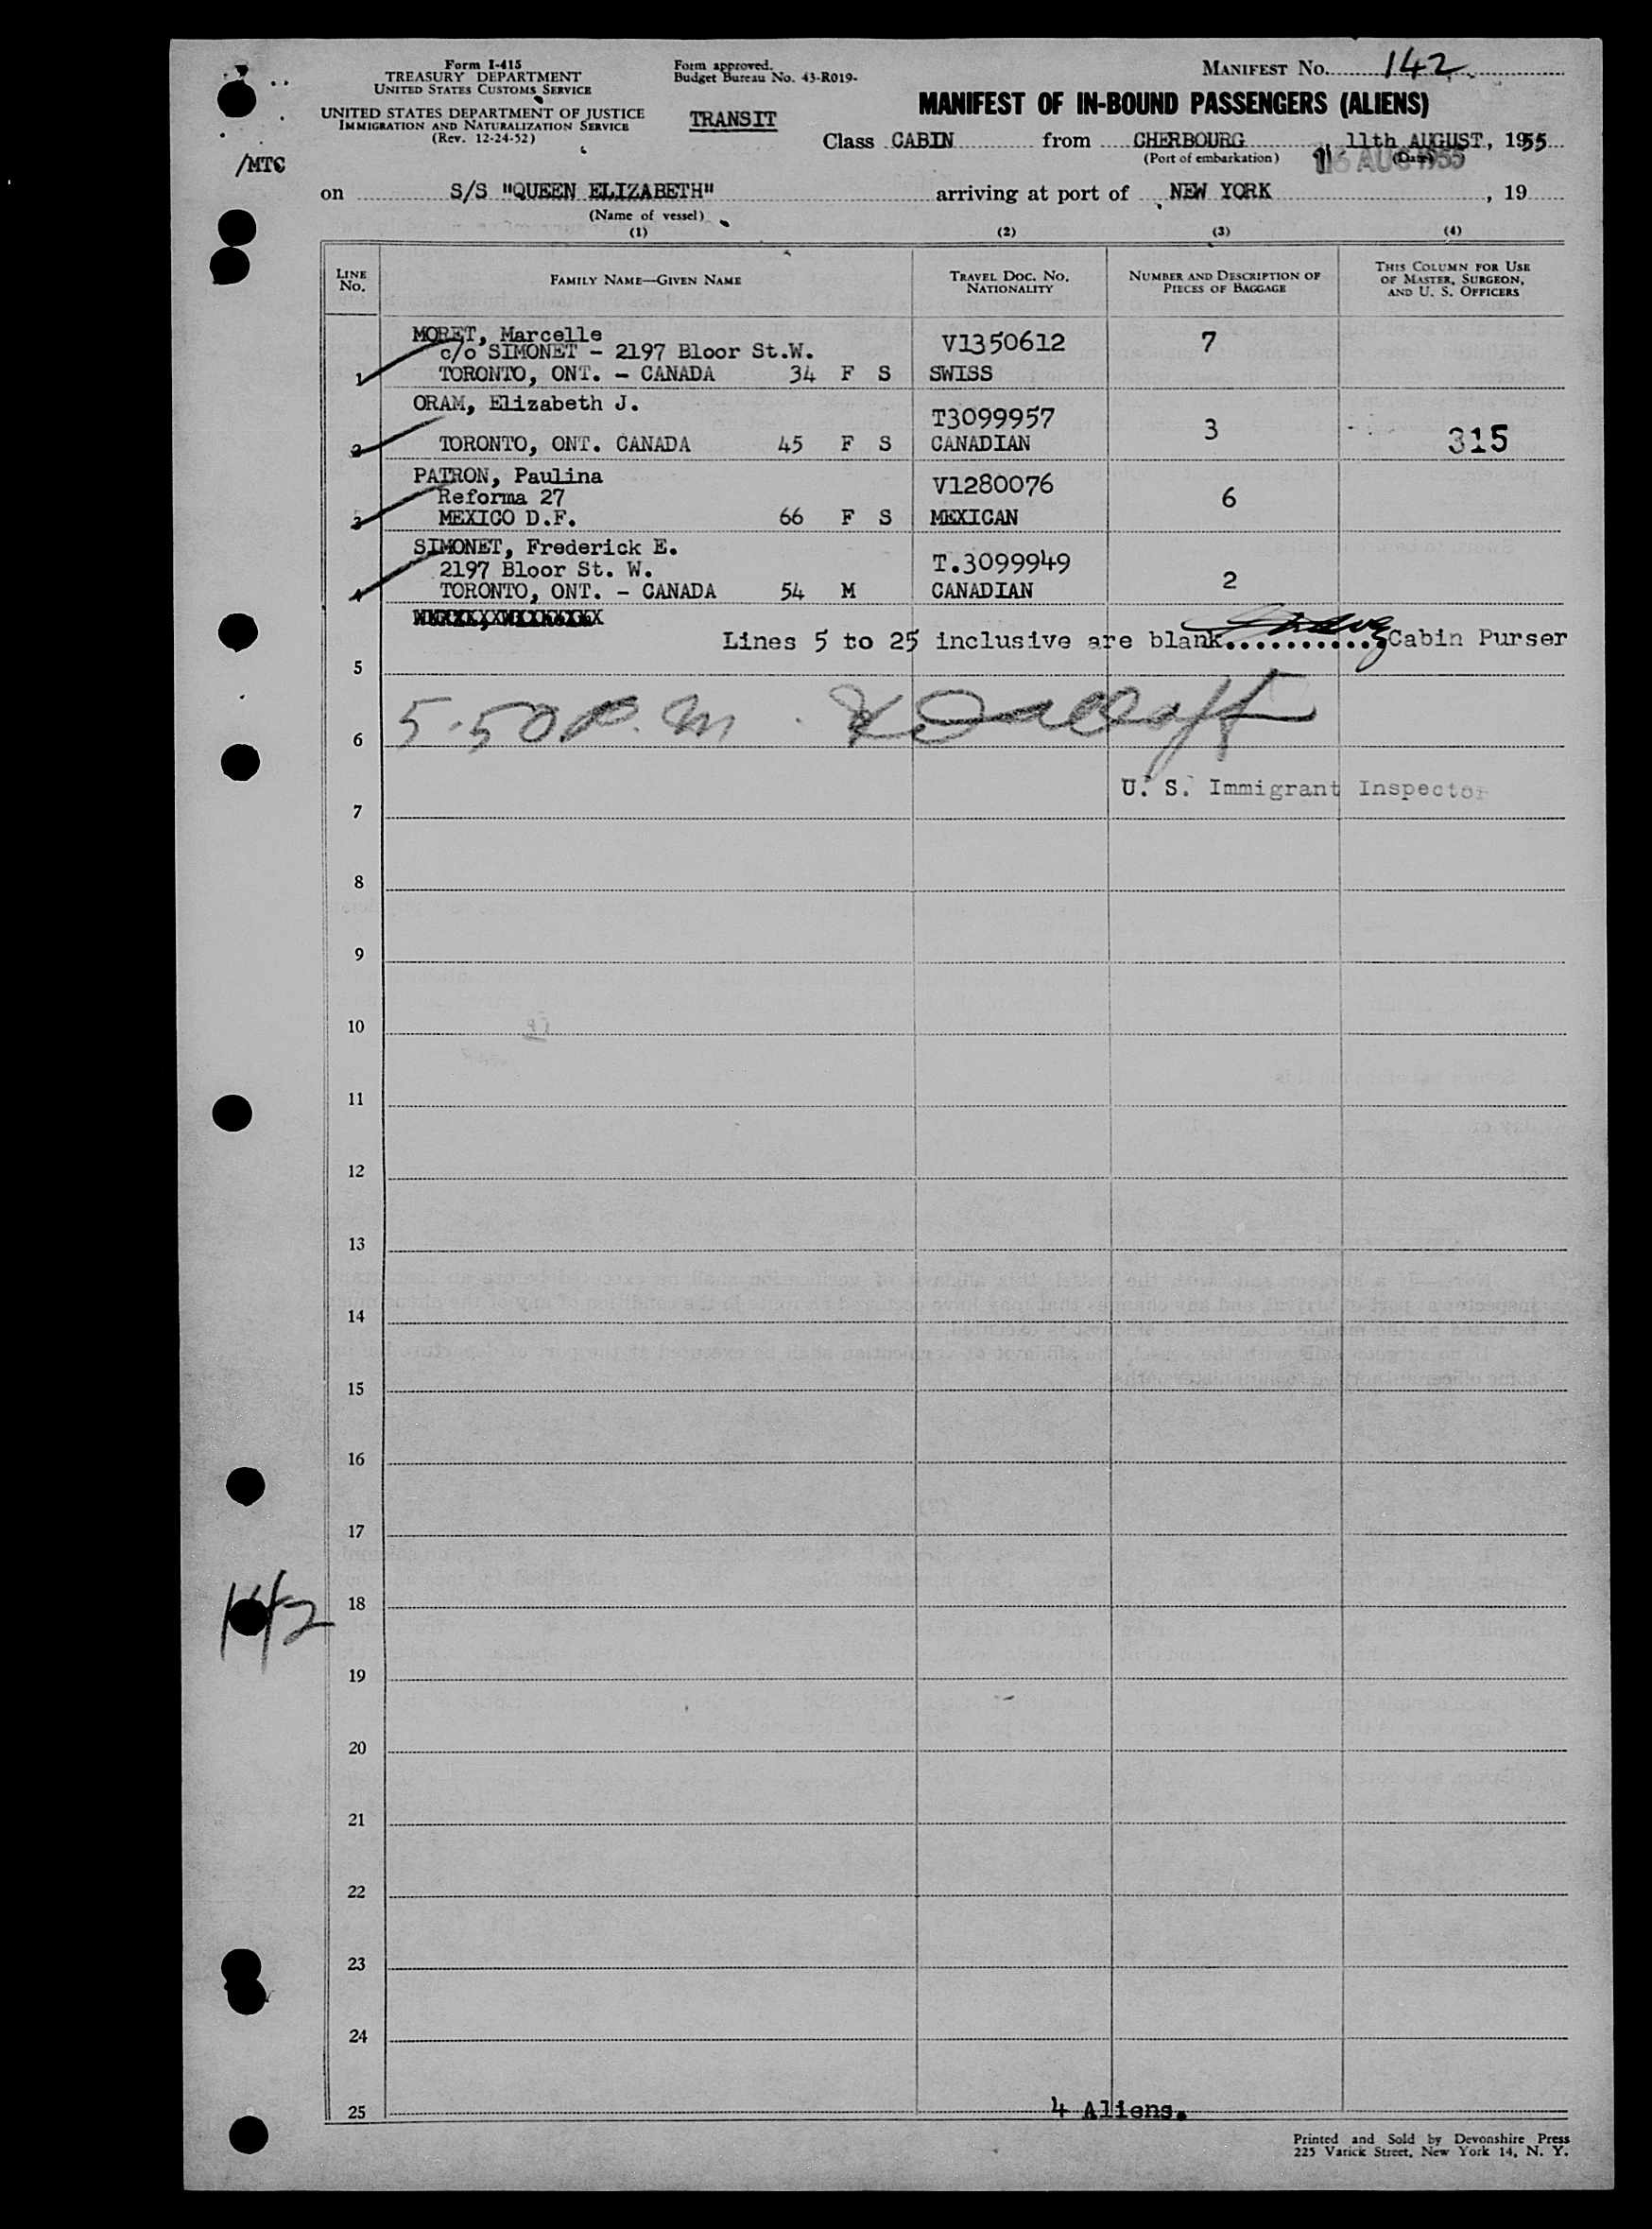 Form I-415
TREASURY DEPARTMENT
UNITED STATES CUSTOMS SERVICE
UNITED STATES DEPARTMENT OF JUSTICE
IMMIGRATION AND NATURALIZATION SERVICE
(Rev. 12-24-52)
Form approved.
Budget Bureau No. 43-R019-
TRANSIT
MANIFEST NO. 142
MANIFEST OF IN-BOUND PASSENGERS (ALIENS)
Class CABIN from CHERBOURG, 11th AUGUST, 1955
(Port of embarkation) (Date)
16 AUG 1955
/MTC
on S/S "QUEEN ELIZABETH" arriving at port of NEW YORK, 19
(Name of vessel)
(1) (2) (3) (4)
LINE NO. FAMILY NAME—GIVEN NAME TRAVEL DOC. NO. NATIONALITY NUMBER AND DESCRIPTION OF PIECES OF BAGGAGE THIS COLUMN FOR USE OF MASTER, SURGEON, AND U. S. OFFICERS
MORET, Marcelle
c/o SIMONET - 2197 Bloor St.W. V1350612 7
1 TORONTO, ONT. - CANADA 34 F S SWISS
ORAM, Elizabeth J.
T3099957 3
2 TORONTO, ONT. CANADA 45 F S CANADIAN 315
PATRON, Paulina
Reforma 27 V1280076 6
3 MEXICO D.F. 66 F S MEXICAN
SIMONET, Frederick E.
2197 Bloor St. W. T.3099949 2
4 TORONTO, ONT. - CANADA 54 M CANADIAN
Lines 5 to 25 inclusive are blank............Cabin Purser
5
5.50 P.m.
6
U. S. Immigrant Inspector
7
8
9
10
11
12
13
14
15
16
17
142
18
19
20
21
22
23
24
25 4 Aliens.
Printed and Sold by Devonshire Press
225 Varick Street, New York 14, N. Y.